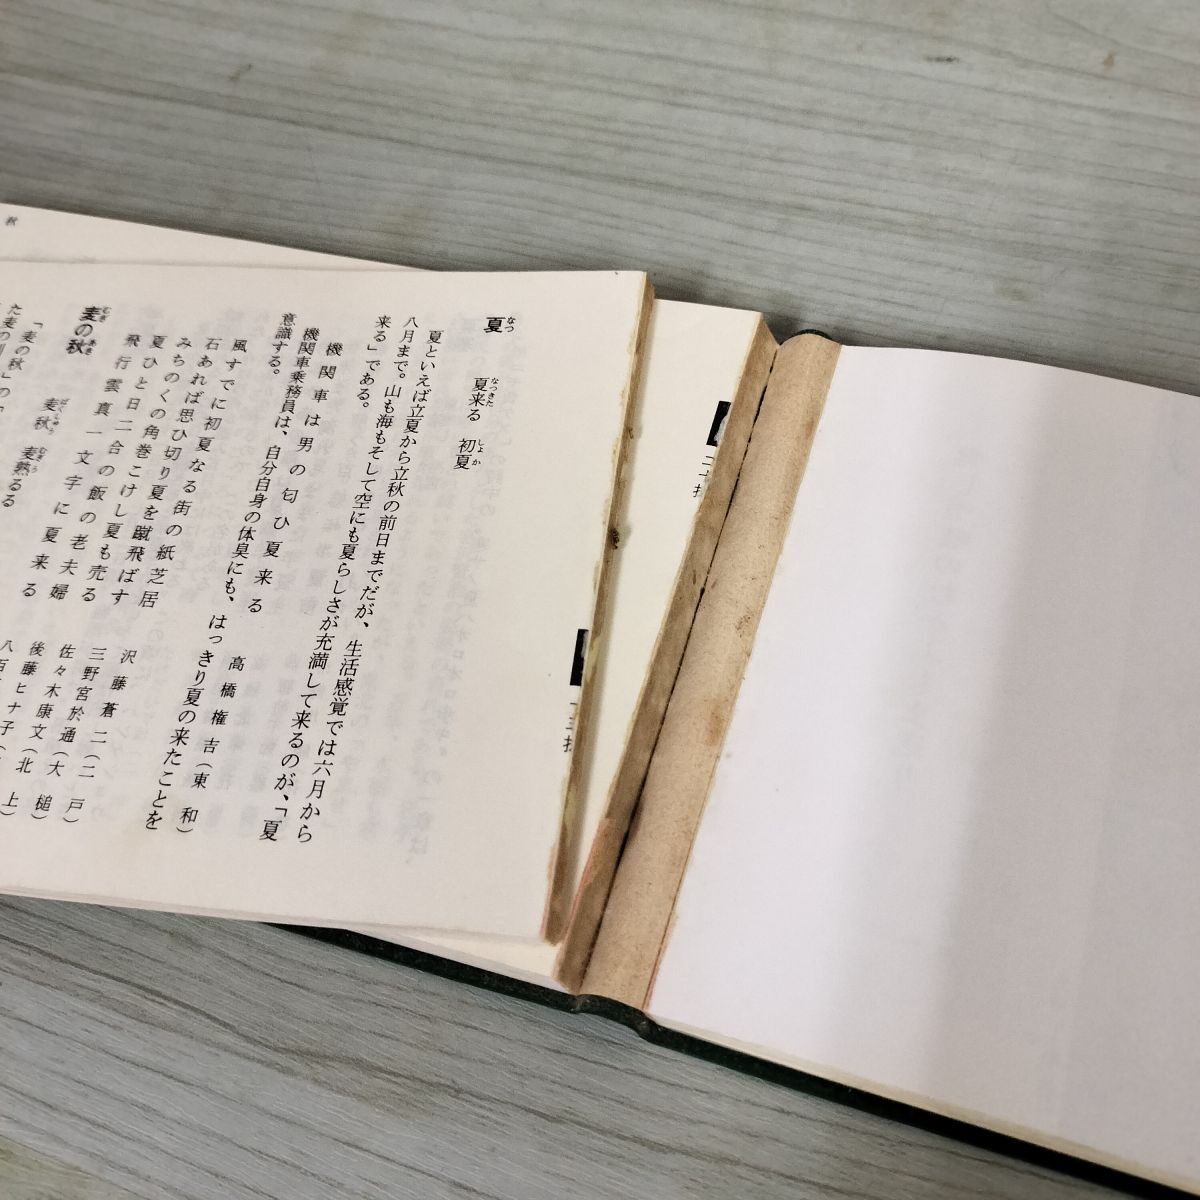 夏 なつ 夏来る なつきた 初夏 しょか
夏といえば立夏から立秋の前日までだが、生活感覚では六月から
八月まで。山も海もそして空にも夏らしさが充満して来るのが、「夏
来る」である。
機関車は男の匂ひ夏来る 高橋権吉（東和）
機関車乗務員は、自分自身の体臭にも、はっきり夏の来たことを
意識する。
風すでに初夏なる街の紙芝居 沢藤蒼二（二戸）
石あれば思ひ切り夏を蹴飛ばす 三野宮於通（大槌）
みちのくの角巻こけし夏も売る 佐々木康文（北上）
夏ひと日二合の飯の老夫婦 後藤ヒナ子（
飛行雲真一文字に夏来る 八百
麦の秋 むぎ あき 麦秋 ばくしゅう 麦熟るる むぎう
「麦の秋
秋